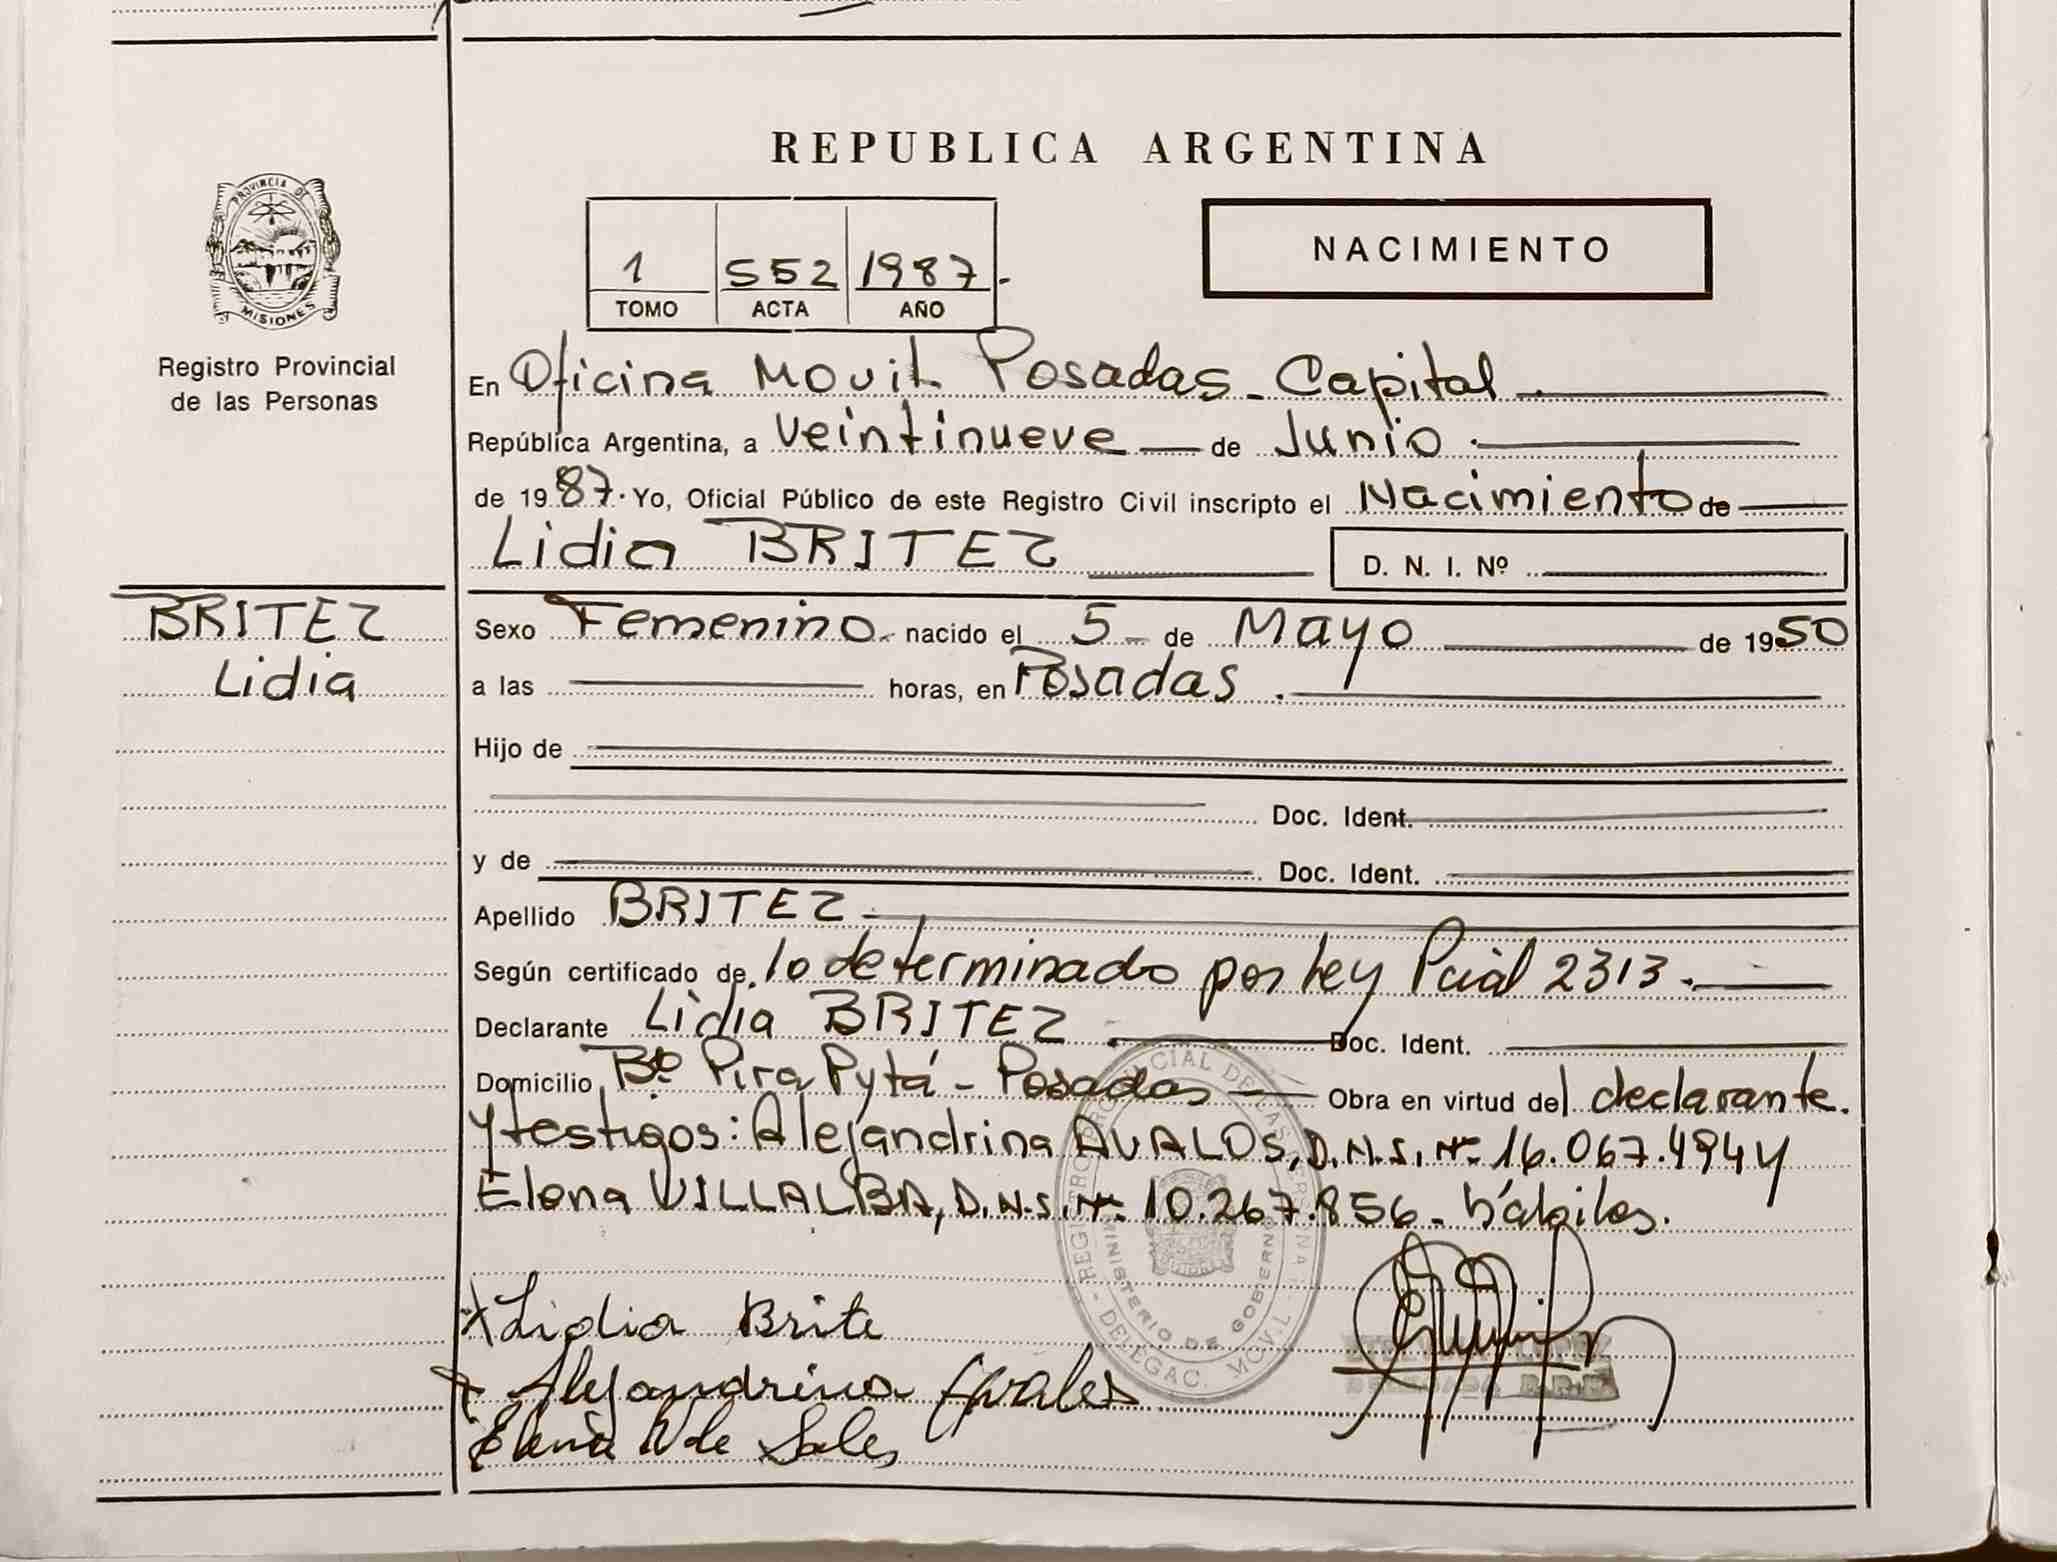 REPUBLICA ARGENTINA
PROVINCIA DE
MISIONES
Registro Provincial
de las Personas
1 552 1987.-
TOMO ACTA AÑO
NACIMIENTO
En Oficina Movil Posadas - Capital
República Argentina, a veintinueve de Junio
de 1987. Yo, Oficial Público de este Registro Civil inscripto el Nacimiento de
Lidia BRITEZ D. N. I. Nº
BRITEZ
Lidia
Sexo Femenino nacido el 5 de Mayo de 1950
a las horas, en Posadas.
Hijo de
Doc. Ident.
y de Doc. Ident.
Apellido BRITEZ
Según certificado de lo determinado por Ley Pcial 2313.
Declarante Lidia BRITEZ Doc. Ident.
Domicilio Bº Pira Pytá - Posadas Obra en virtud del declarante.
y testigos: Alejandrina AVALOS, D.N.I. Nº 16.067.494 y
Elena VILLALBA, D.N.I. Nº 10.267.856 - hábiles.
REGISTRO PROVINCIAL DE LAS PERSONAS - DELEGAC. MOVIL
MINISTERIO DE GOBIERNO
x Lidia Brite
x Alejandrina Avales
Elena V de Sales
DELEGADA R.P.P.